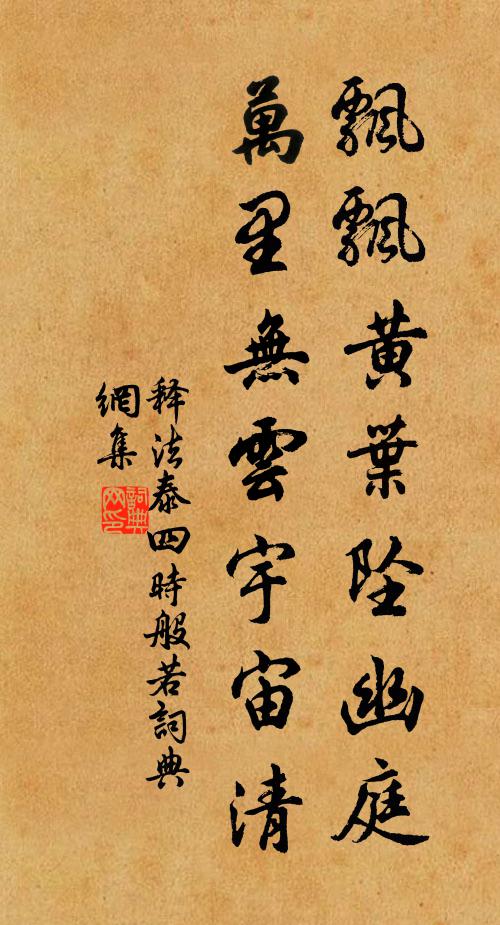 飄飄黃葉墜幽庭
萬里無雲宇宙清
释法泰四時般若詞典
網集
詞典网印